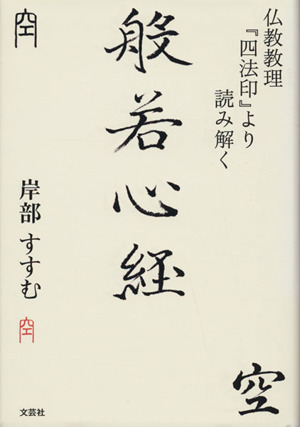 仏教教理
『四法印』より
読み解く
般若心経
空
岸部 すすむ
空
空
文芸社